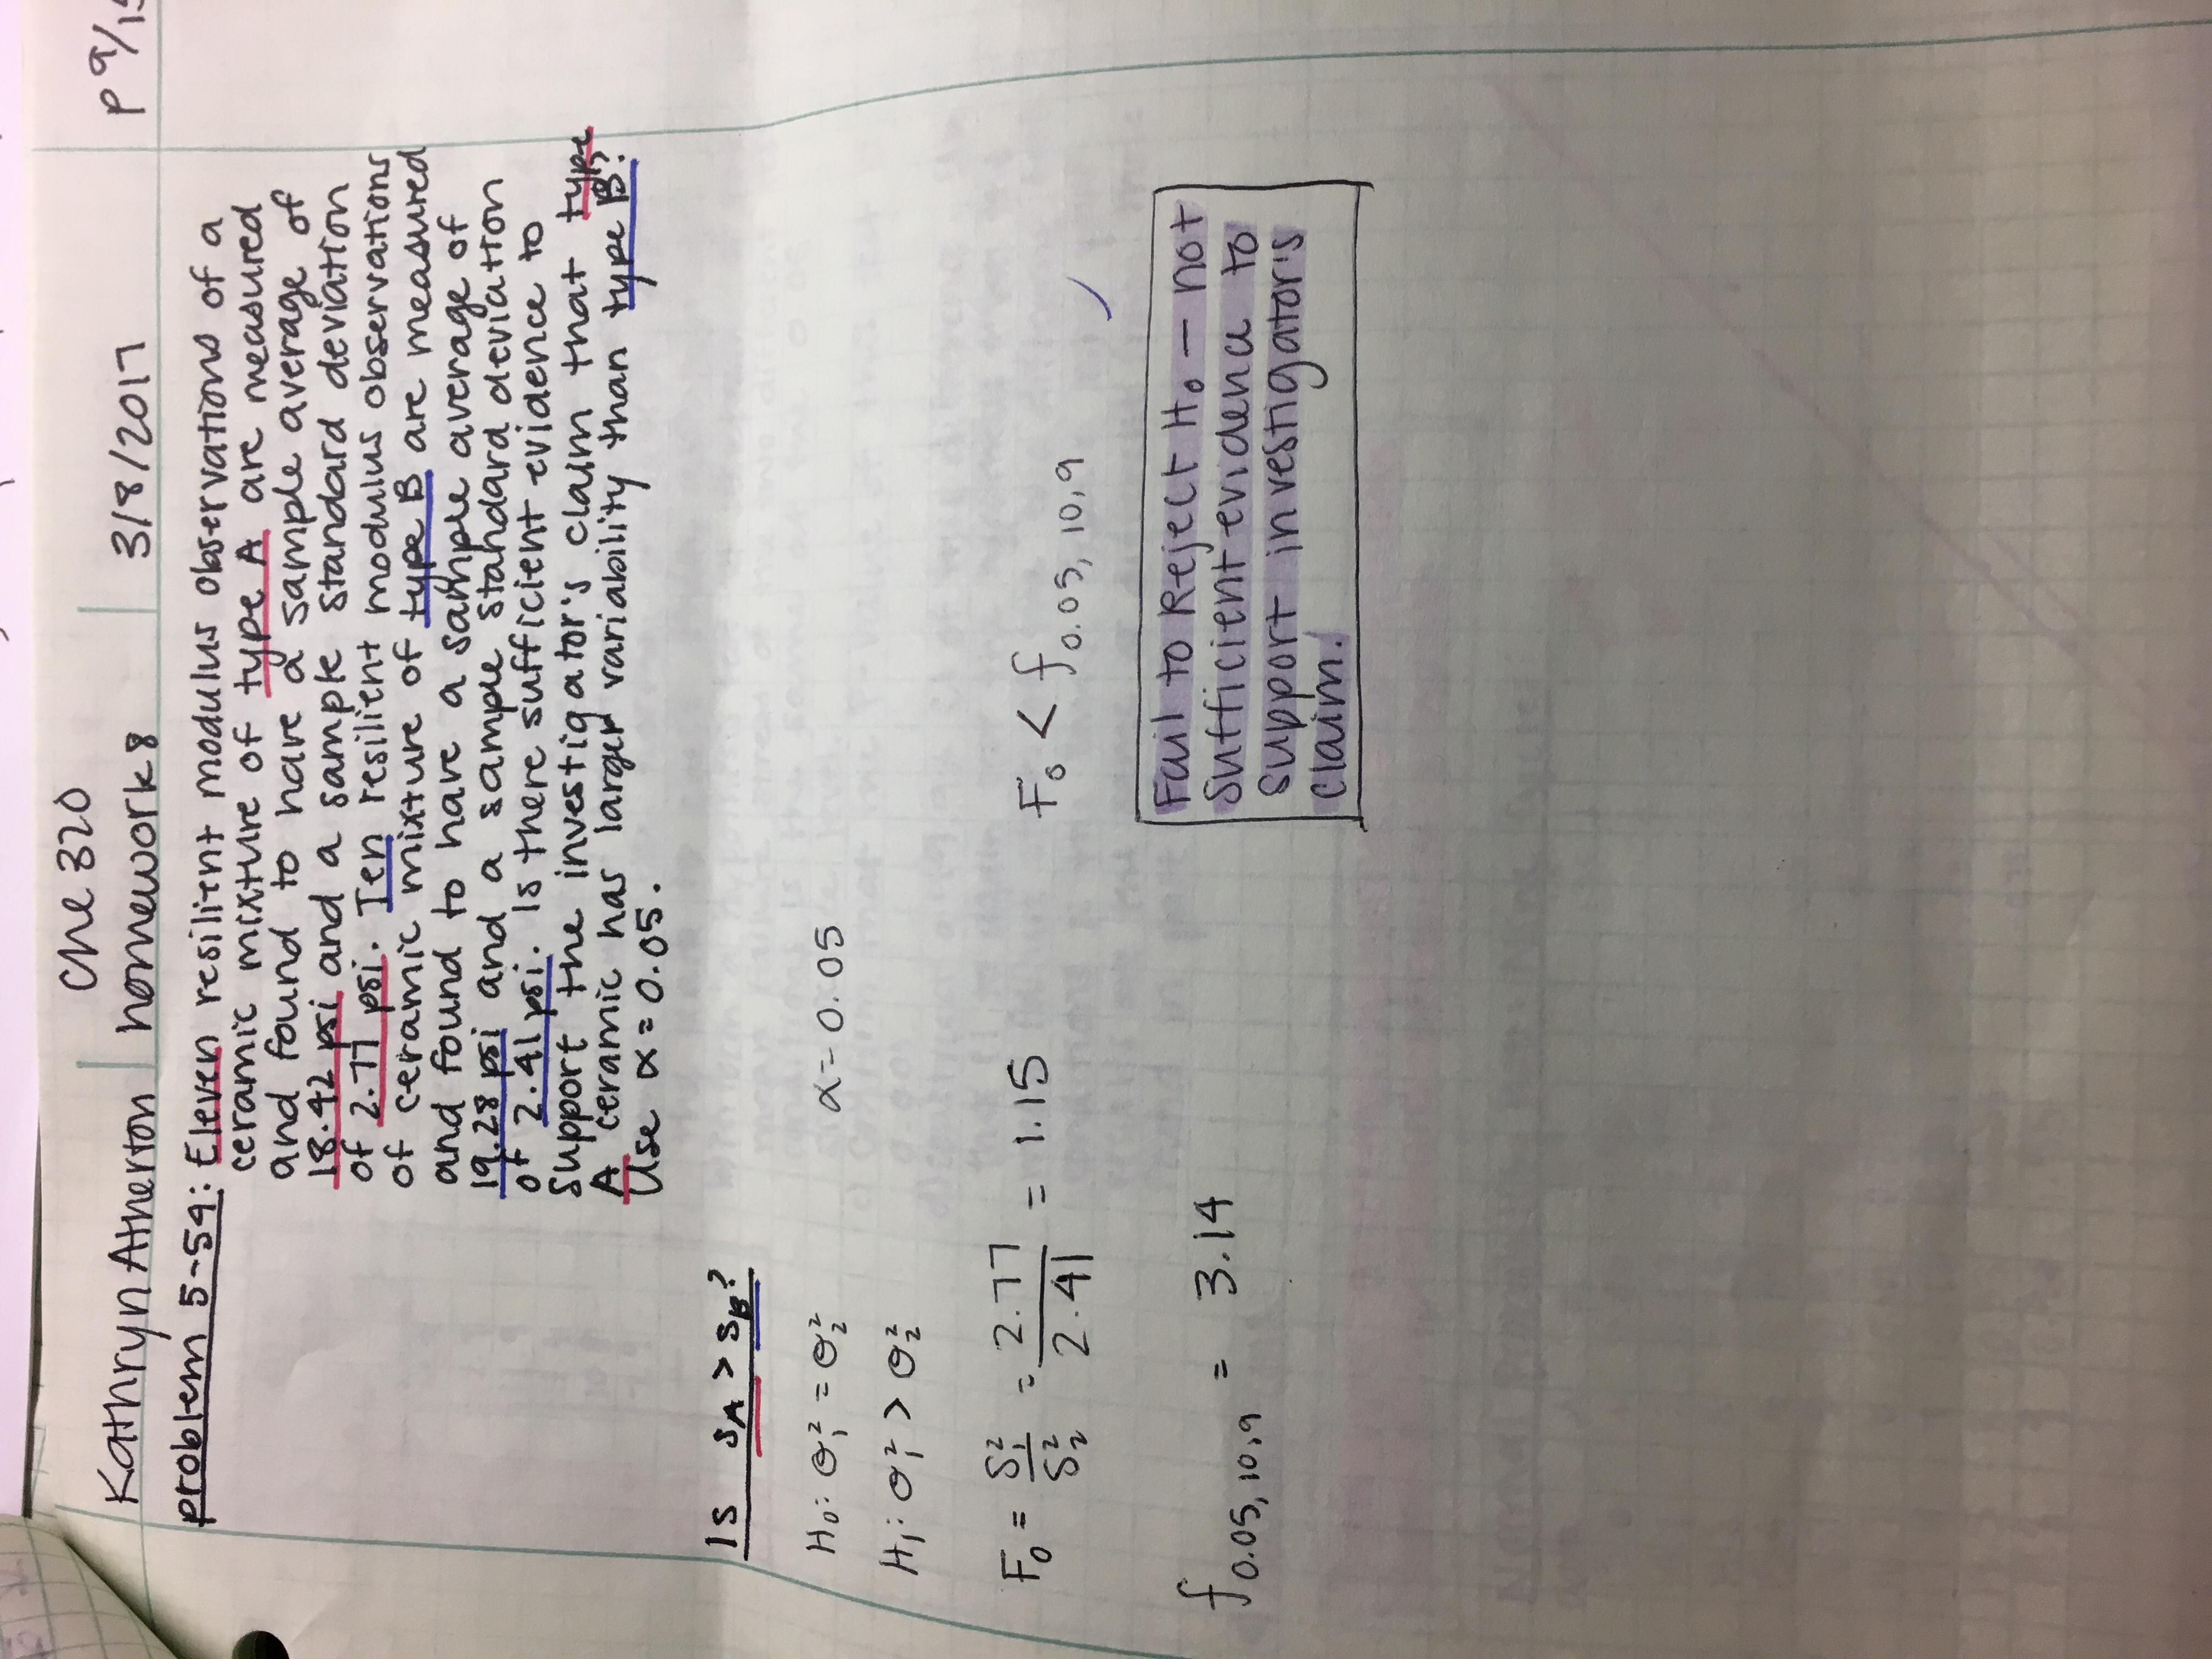 Che 320
Kathryn Atherton homework 8 3/8/2017 p 9/15
problem 5-59: Eleven resilient modulus observations of a
ceramic mixture of type A are measured
and found to have a sample average of
18.42 psi and a sample standard deviation
of 2.77 psi. Ten resilient modulus observations
of ceramic mixture of type B are measured
and found to have a sample average of
19.28 psi and a sample standard deviation
of 2.41 psi. Is there sufficient evidence to
support the investigator's claim that type
A ceramic has larger variability than type B?
Use α = 0.05.
Is s_A > s_B?
H₀: σ₁² = σ₂² α = 0.05
H₁: σ₁² > σ₂²
F₀ = S₁²/S₂² = 2.77/2.41 = 1.15 F₀ < f₀.₀₅, ₁₀,₉
f₀.₀₅, ₁₀,₉ = 3.14
Fail to Reject H₀ — not
sufficient evidence to
support investigator's
claim.